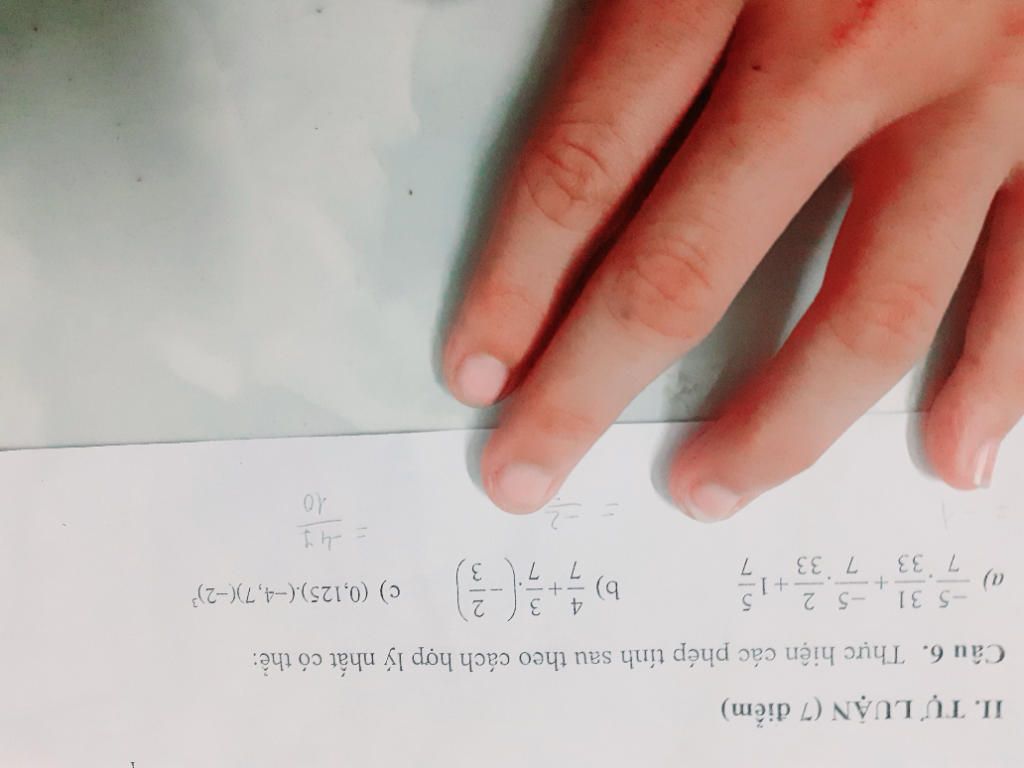 II. TỰ LUẬN (7 điểm)
Câu 6. Thực hiện các phép tính sau theo cách hợp lý nhất có thể:
a) -5/7 . 31/33 + -5/7 . 2/33 + 1 5/7 b) 4/7 + 3/7 . (-2/3) c) (0,125).(-4,7)(-2)³
= = =